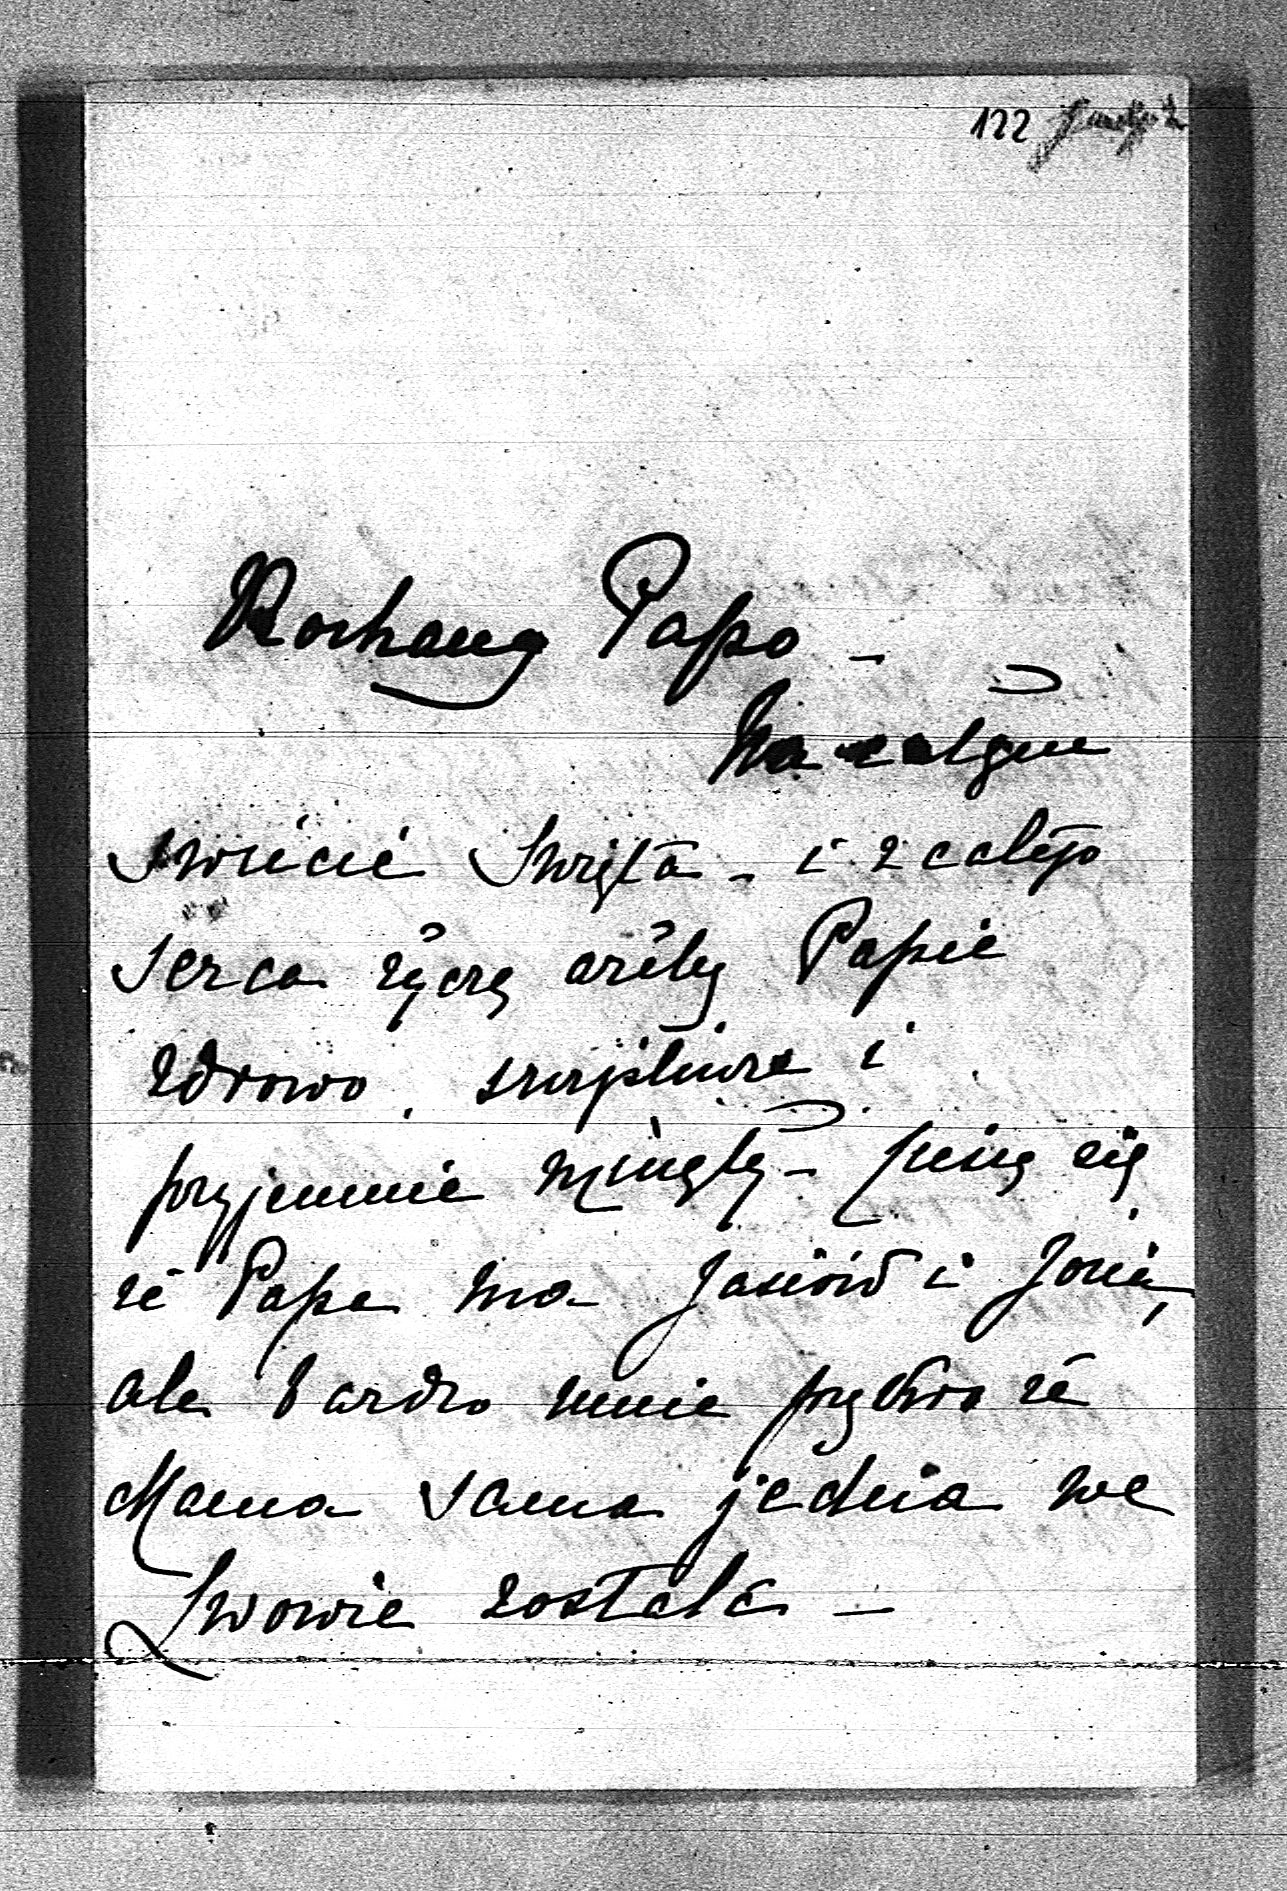 122
Kochany Papo —
Na całym
świecie Święta — i z całego
serca życzę ażeby Papie
zdrowo, szczęśliwie i
przyjemnie minęły —  się
że Papa ma Jasiów i Jozia,
ale bardzo mnie przykro że
Mama sama jedna we
Lwowie została —